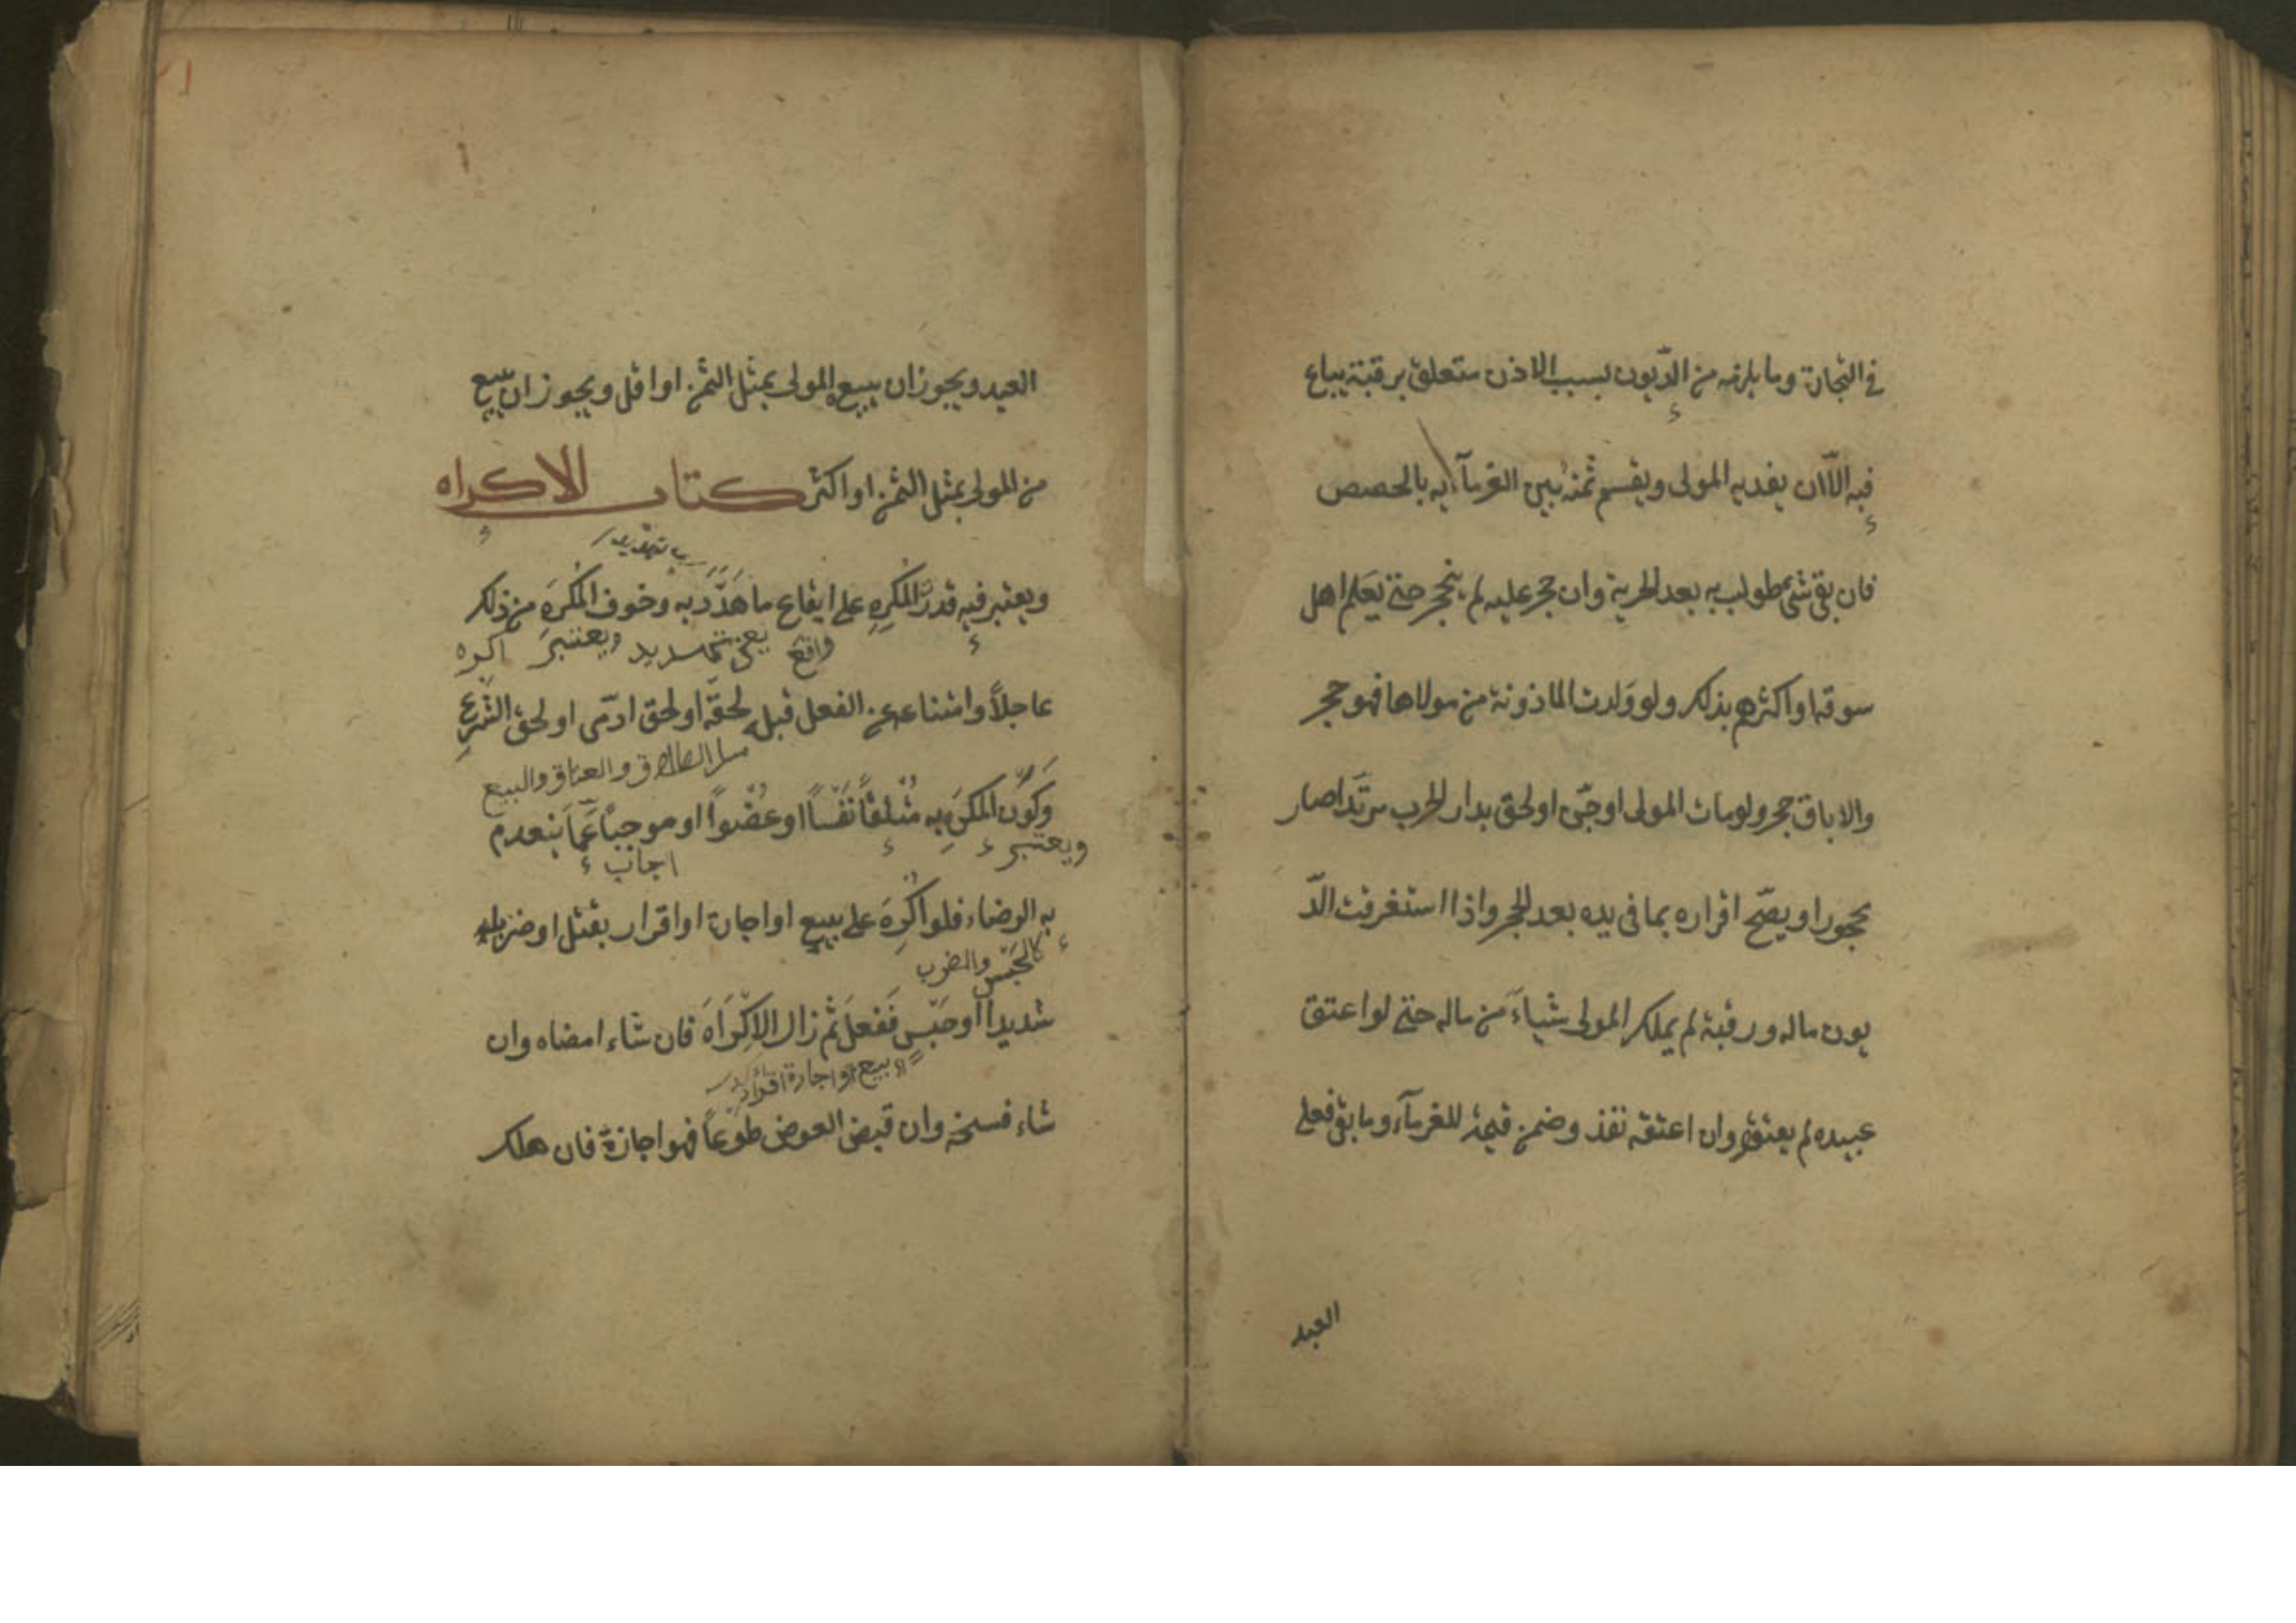 في التجارة وما يلزمه من الدّيون بسبب الاذن متعلق برقبته يباع
فيه الاّ ان يفديه المولى ويقسم ثمنه بين الغرمآء به بالحصص
فان بقى شئ طولب به بعد الحرية وان حجر عليه لم ينحجر حتى يعلم اهل
سوقه او اكثرهم بذلك ولو ولدت الماذونة من مولاها فهو حجر
والاباق حجر ولو مات المولى او جنّ او لحق بدار الحرب مرتدا صار
محجورا ويصحّ اقراره بما فى يده بعد الحجر واذا استغرقت الدّ
يون ماله ورقبته لم يملك المولى شياء من ماله حتى لو اعتق
عبيده لم يعتقوا وان اعتقه نفذ وضمن قيمته للغرمآء وما بقى فعلى
العبد
العبد ويجوز ان يبيعه المولى بمثل الثمن او اقل ويجوز ان يبيع
من المولى بمثل الثمن او اكثر كتاب الاكراه
ويعتبر فيه قدرة المُكرِهِ على ايقاع ما هدّد به وخوف المُكرَهَ من ذلك
واقع يعنى تهديد ويعتبر اكره
عاجلاً وامتناعه عن الفعل قبله لحقّه او لحق ادمّى او لحق الشرع
مثل الطلاق والعتاق والبيع
وكون المكره به مُتْلفاً نفساً او عُضْواً او موجباً غمّاً ينعدم
ويعتبر
اجاب
به الرضاء فلو اُكْرِهَ على بيع او اجارة او اقرار بقتل او ضرب
كالحَبْس والضرب
شديدا او حَبْس فَفعلَ ثم زال الاِكْرَاهَ فان شاء امضاه وان
بيع او اجارة اقرار
شاء فسخه وان قبض العوض طوعاً فهو اجازة فان هلك